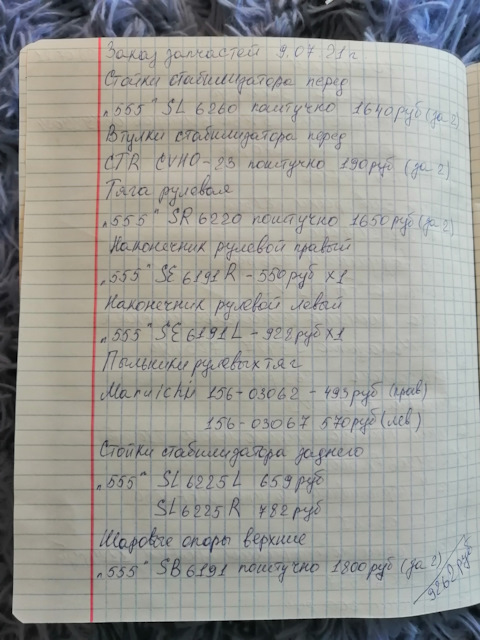 Заказ запчастей 9.07.21г
Стойки стабилизатора перед
„555" SL 6260 поштучно 1640руб(за 2)
Втулки стабилизатора перед
CTR CVHO-23 поштучно 190руб (за 2)
Тяга рулевая
„555" SR 6220 поштучно 1650руб(за 2)
Наконечник рулевой правый
„555" SE 6191R - 550руб х1
Наконечник рулевой левый
„555" SE 6191L - 922руб х1
Пыльники рулевых тяг
156-03062 - 493руб (прав)
156-03067 570руб (лев)
Стойки стабилизатора заднего
„555" SL 6225L 659руб
SL6225R 782руб
Шаровые опоры верхние
„555" SB 6191 поштучно 1800руб (за 2)
9262руб